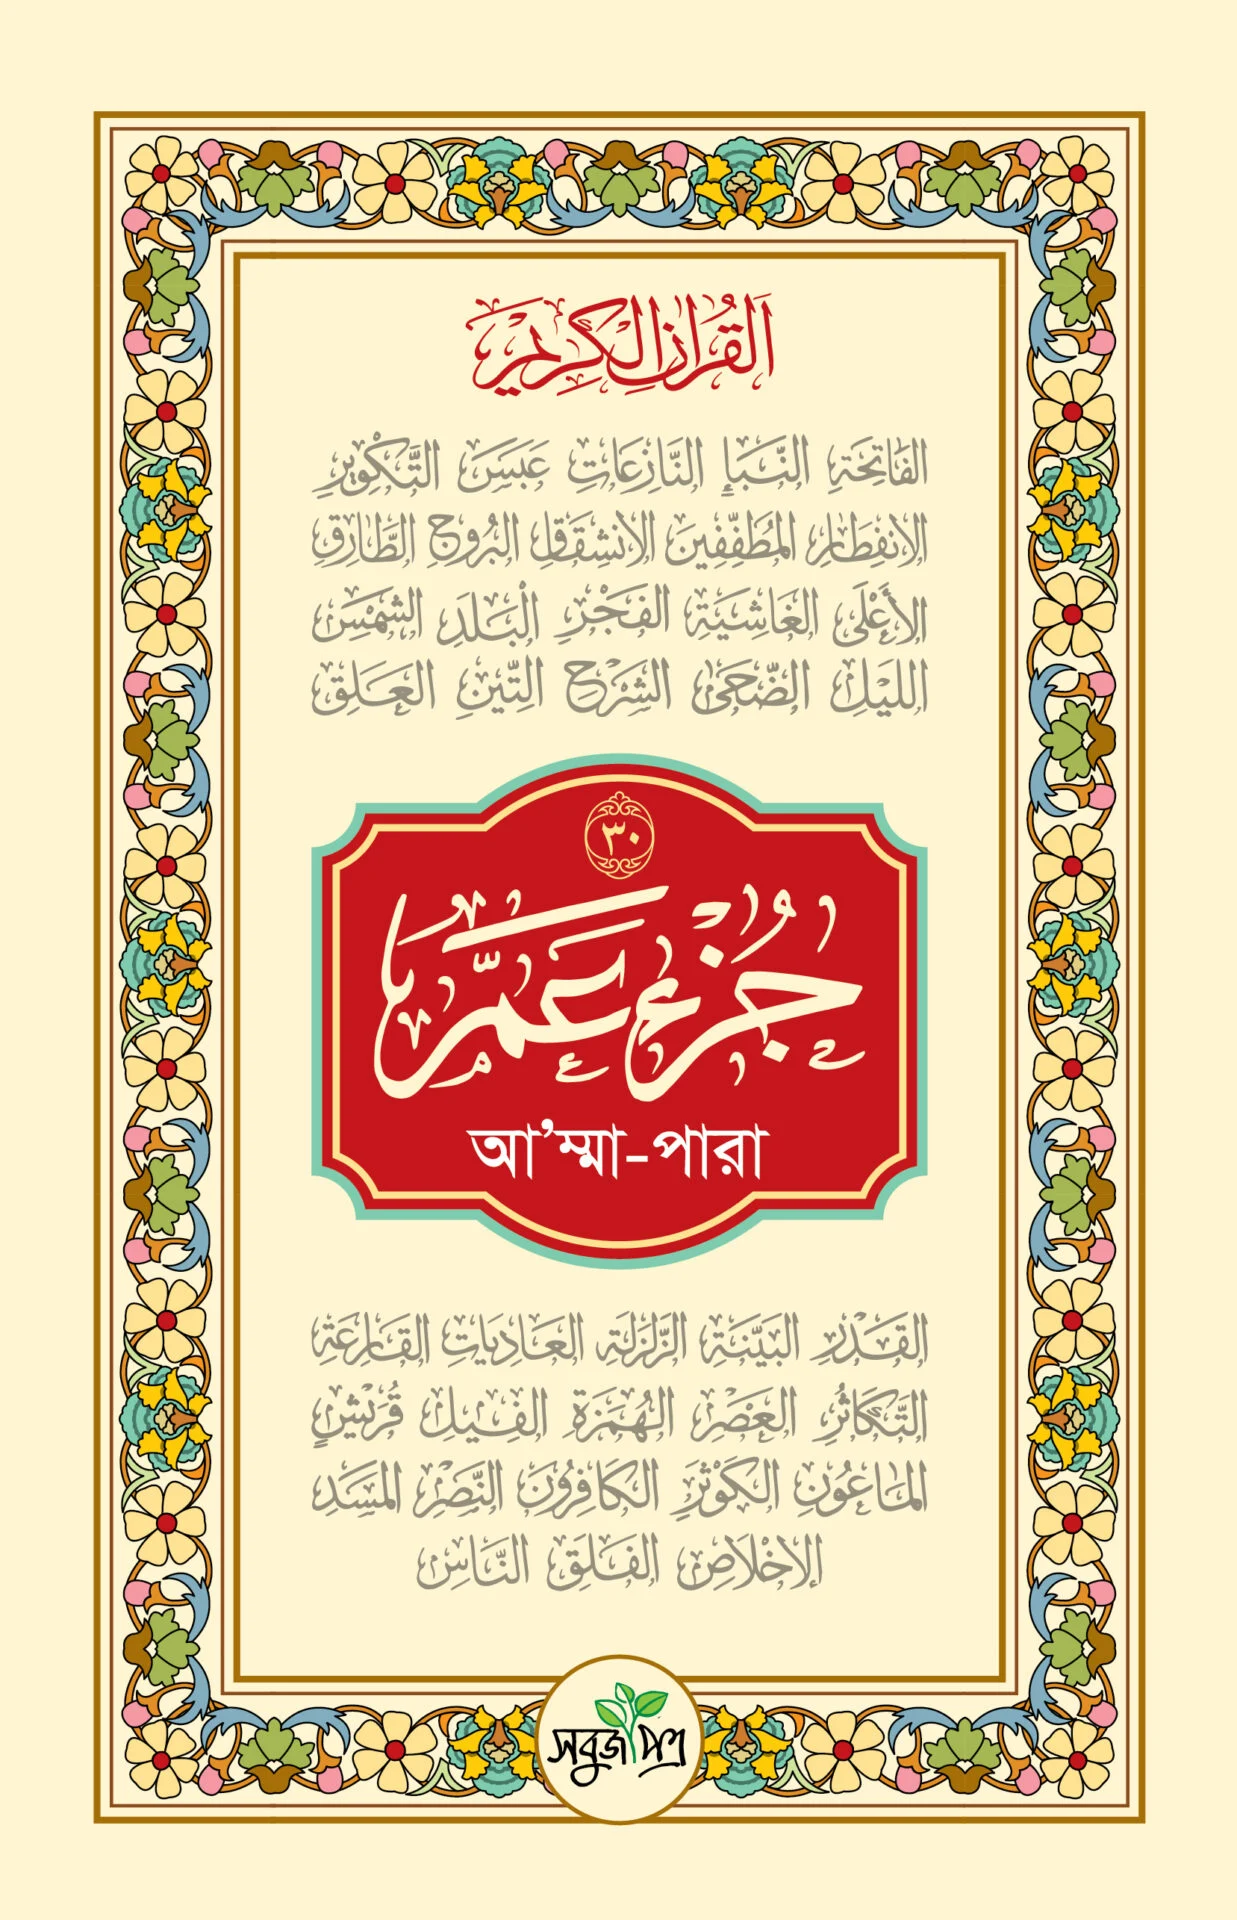 القُرآنُ الْكَرِيْمِ
الفَاتِحَةِ النَّبَإِ النَّازِعَاتِ عَبَسَ التَّكْوِيرِ
الانْفِطَارِ المُطَفِّفِينَ الانْشِقَاقِ البُرُوجِ الطَّارِقِ
الأَعْلَى الغَاشِيَةِ الفَجْرِ الْبَلَدِ الشَّمْسِ
الليْلِ الضُّحَى الشَرْحِ التِّينِ العَلَقِ
٣٠
جُزْء عَمَّ
আ’ম্মা-পারা
القَدْرِ البَيِّنَةِ الزَّلْزَلَةِ العَادِيَاتِ القَارِعَةِ
التَّكَاثُرِ العَصْرِ الهُمَزَةِ الفِيلِ قُرَيْشٍ
المَاعُونِ الكَوْثَرِ الكَافِرُونَ النَّصْرِ المَسَدِ
الإخْلَاصِ الفَلَقِ النَّاسِ
সবুজপত্র